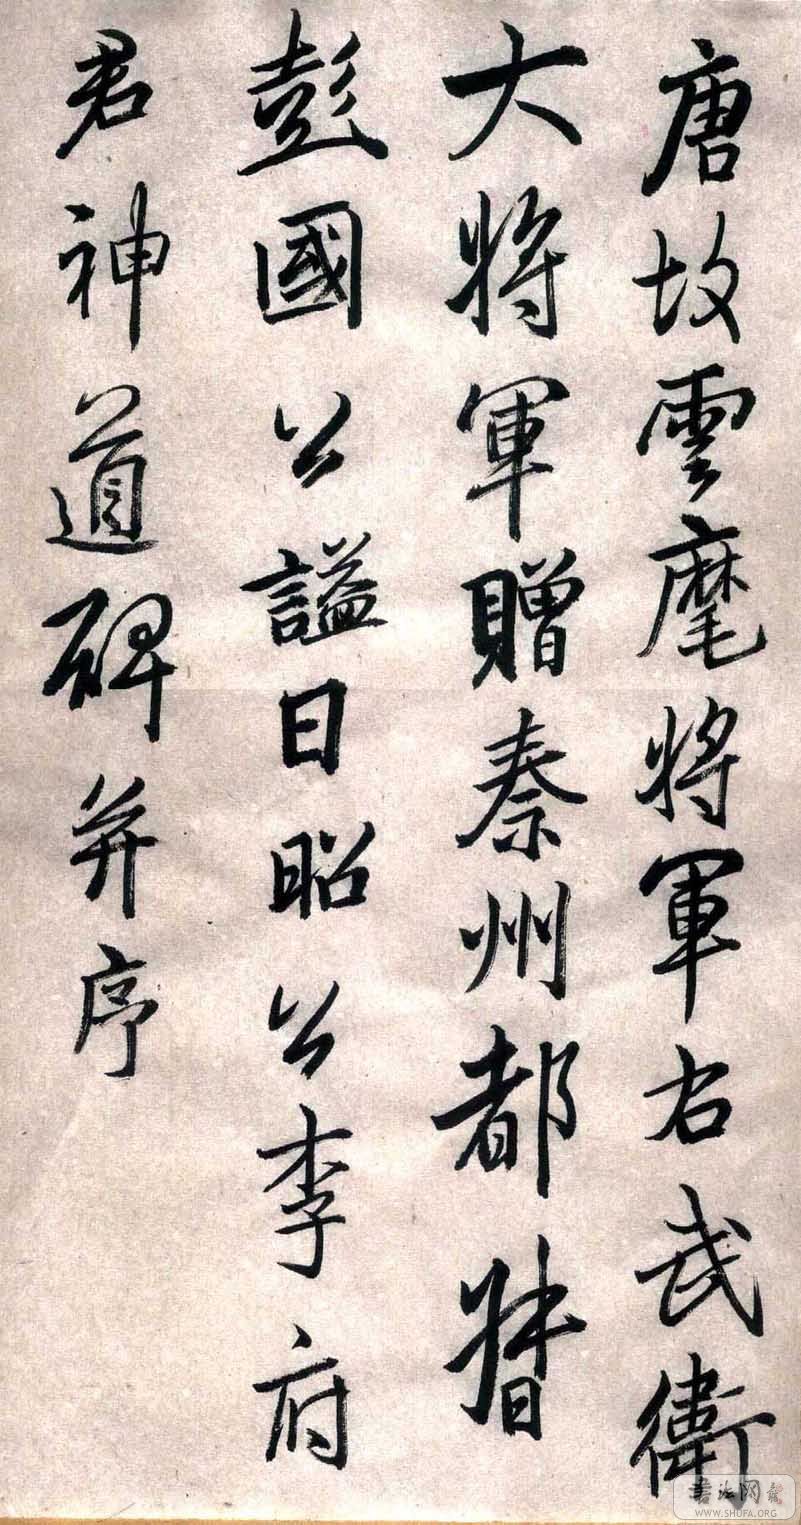 唐故雲麾將軍右武衛
大將軍贈秦州都督
彭國公謚曰昭公李府
君神道碑并序
書法网
WWW.SHUFA.ORG